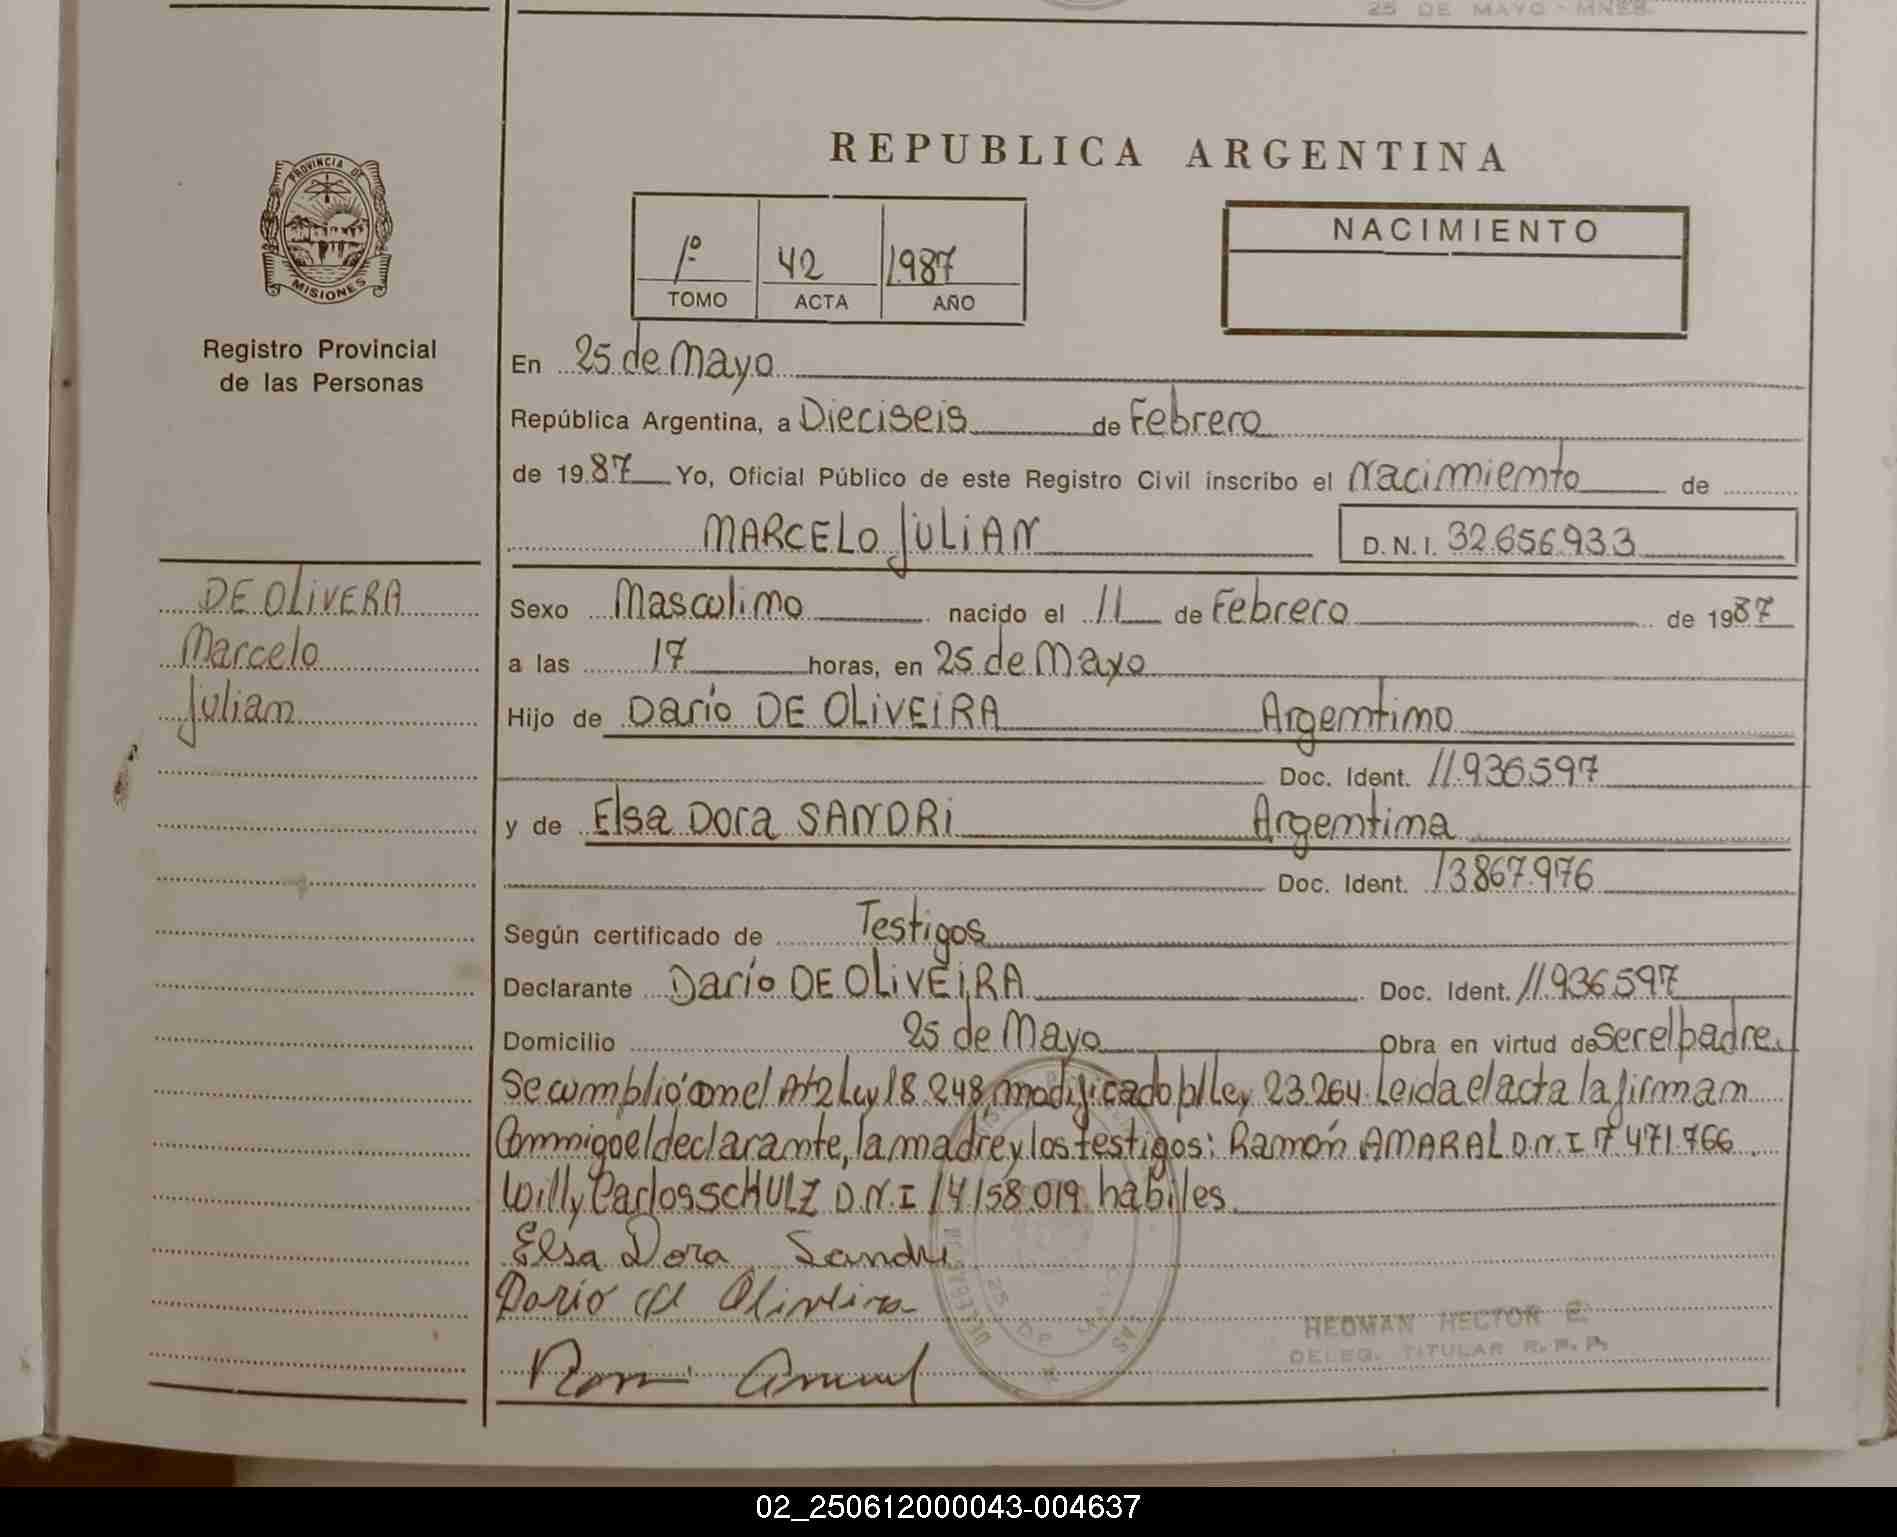 25 DE MAYO - MNES.
REPUBLICA ARGENTINA
PROVINCIA DE
MISIONES
Registro Provincial
de las Personas
1º 42 1987
TOMO ACTA AÑO
NACIMIENTO
En 25 de Mayo
República Argentina, a Dieciseis de Febrero
de 1987 Yo, Oficial Público de este Registro Civil inscribo el Nacimiento de
MARCELO JULIAN D.N.I. 32.656.933
DE OLIVERA
Marcelo
Julian
Sexo Masculino nacido el 11 de Febrero de 1987
a las 17 horas, en 25 de Mayo
Hijo de Darío DE OLIVEIRA Argentino
Doc. Ident. 11.936.597
y de Elsa Dora SANDRI Argentina
Doc. Ident. 13.867.976
Según certificado de Testigos
Declarante Darío DE OLIVEIRA Doc. Ident. 11.936.597
Domicilio 25 de Mayo Obra en virtud de ser el padre.
Se cumplió con el Art 2 Ley 18.248, modificado p/Ley 23.264. Leida el acta la firman
Conmigo el declarante, la madre y los testigos: Ramón AMARAL D.N.I 7.471.766
Willy Carlos SCHULZ D.N.I 14.158.019 habiles.
Elsa Dora Sandri
Dario de Oliveira
HEDMAN HECTOR E.
DELEG. TITULAR R.P.P.
02_250612000043-004637